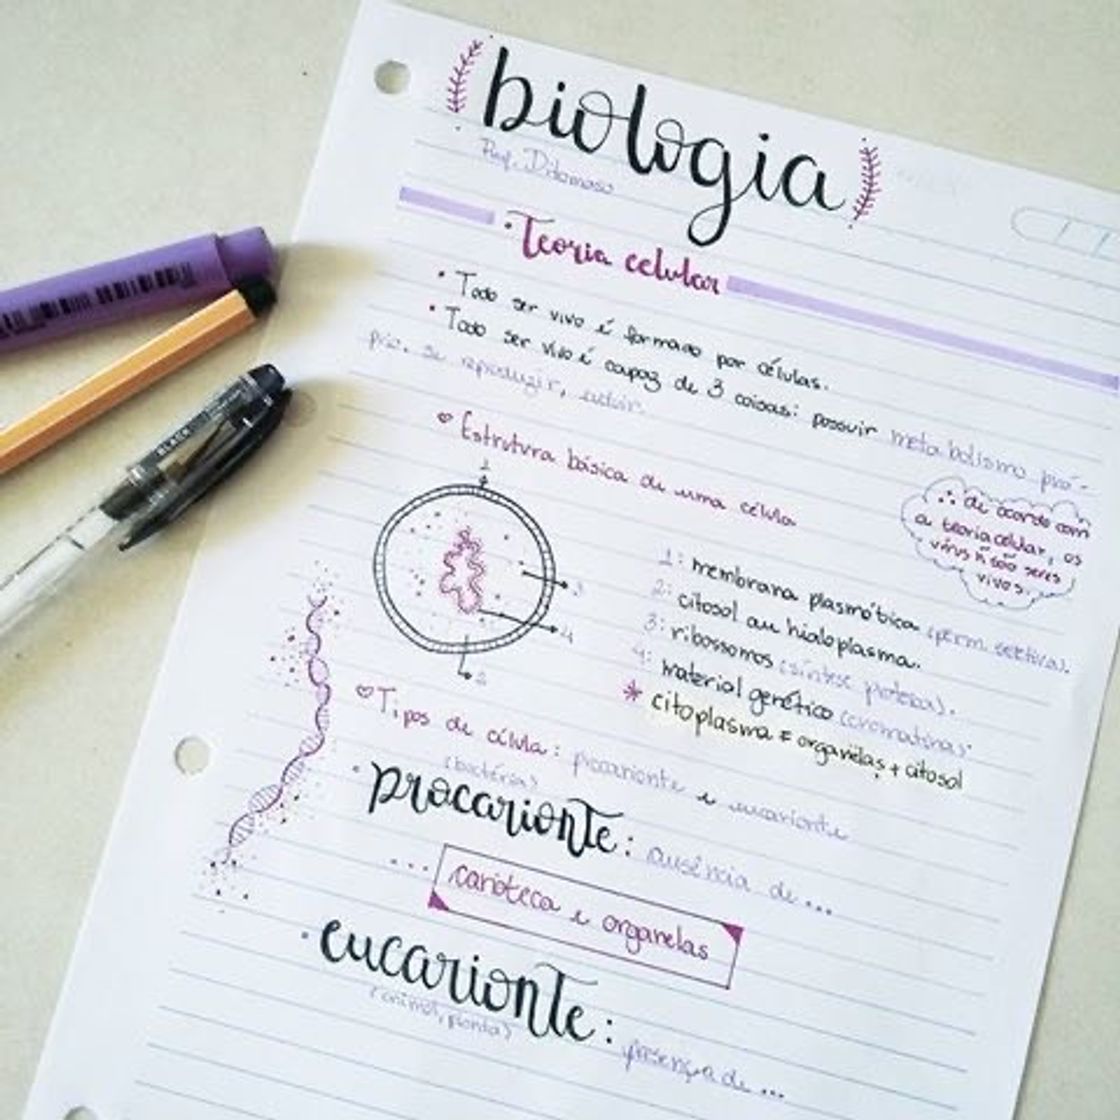 biologia
Prof. Ditomaso
• Teoria celular
• Todo ser vivo é formado por células.
• Todo ser vivo é capaz de 3 coisas: possuir metabolismo pró-
prio, se reproduzir,
♡ Estrutura básica de uma célula
1
3
4
2
∴ de acordo com
a teoria celular, os
vírus ñ são seres
vivos.
1: membrana plasmática (perm. seletiva).
2: citosol ou hialoplasma.
3: ribossomos (síntese proteica).
4: material genético (cromatina).
* citoplasma = organelas + citosol
♡ Tipos de célula: procarionte e eucarionte
(bactéria)
• procarionte: ausência de...
... carioteca e organelas
• eucarionte: presença de...
(animal, planta)
BLACK